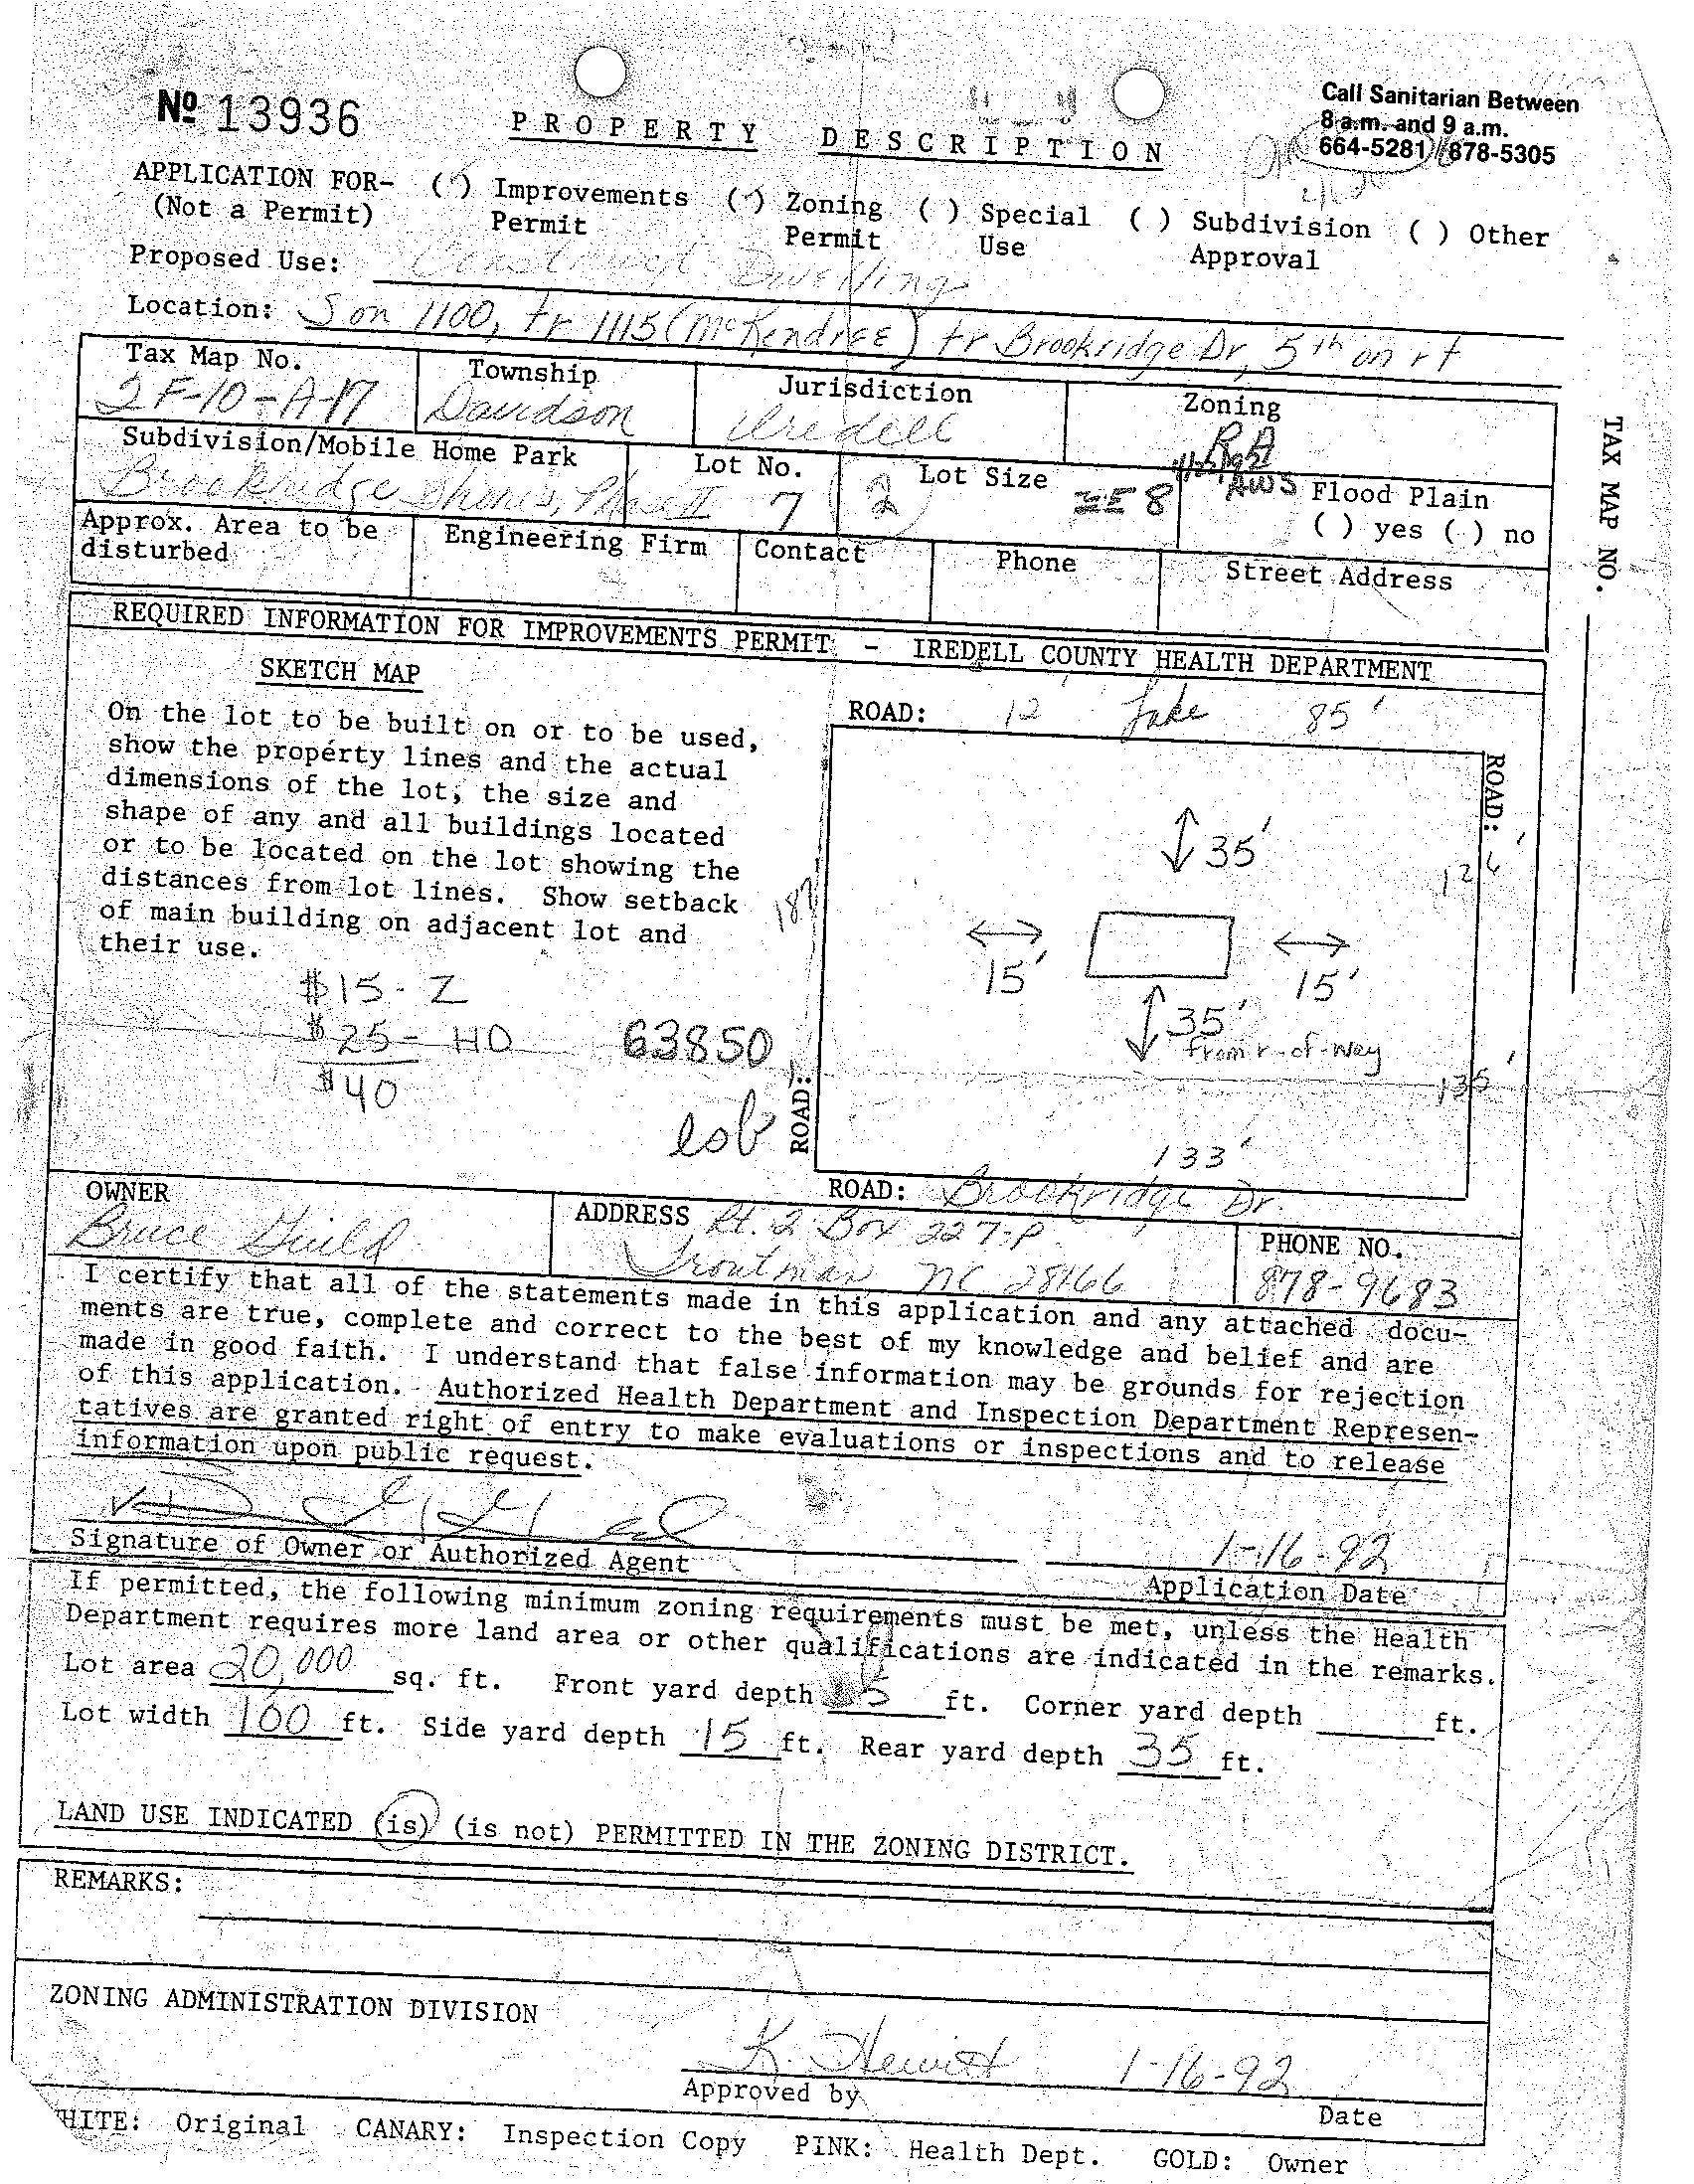 Nº 13936
PROPERTY DESCRIPTION
Call Sanitarian Between
8 a.m. and 9 a.m.
664-5281 / 878-5305
APPLICATION FOR- ( ) Improvements Permit ( ) Zoning Permit ( ) Special Use ( ) Subdivision Approval ( ) Other
(Not a Permit)
Proposed Use: Construct Dwelling
Location: S on 1100, tr 1115 (McKendree) tr Brookridge Dr, 5th on rt
Tax Map No. Township Jurisdiction Zoning
2F-10-A-17 Davidson Iredell RA
Subdivision/Mobile Home Park Lot No. Lot Size Flood Plain
Brookridge Shores, Phase II 7 2
AWS
( ) yes ( ) no
Approx. Area to be disturbed Engineering Firm Contact Phone Street Address
TAX MAP NO.
REQUIRED INFORMATION FOR IMPROVEMENTS PERMIT - IREDELL COUNTY HEALTH DEPARTMENT
SKETCH MAP
On the lot to be built on or to be used,
show the property lines and the actual
dimensions of the lot, the size and
shape of any and all buildings located
or to be located on the lot showing the
distances from lot lines. Show setback
of main building on adjacent lot and
their use.
$15- Z
$25- HD
$40
63850
ROAD: 12 Lake 85'
ROAD:
35'
15' 15'
35'
from r-of-way
135'
133'
ROAD:
ROAD: Brookridge Dr.
OWNER ADDRESS PHONE NO.
Bruce Guild Rt. 2 Box 227-P
Troutman NC 28166 878-9683
I certify that all of the statements made in this application and any attached docu-
ments are true, complete and correct to the best of my knowledge and belief and are
made in good faith. I understand that false information may be grounds for rejection
of this application. Authorized Health Department and Inspection Department Represen-
tatives are granted right of entry to make evaluations or inspections and to release
information upon public request.
1-16-92
Signature of Owner or Authorized Agent Application Date
If permitted, the following minimum zoning requirements must be met, unless the Health
Department requires more land area or other qualifications are indicated in the remarks.
Lot area 20,000 sq. ft. Front yard depth ft. Corner yard depth ft.
Lot width 100 ft. Side yard depth 15 ft. Rear yard depth 35 ft.
LAND USE INDICATED (is) (is not) PERMITTED IN THE ZONING DISTRICT.
REMARKS:
ZONING ADMINISTRATION DIVISION
K. Hewitt 1-16-92
Approved by Date
WHITE: Original CANARY: Inspection Copy PINK: Health Dept. GOLD: Owner